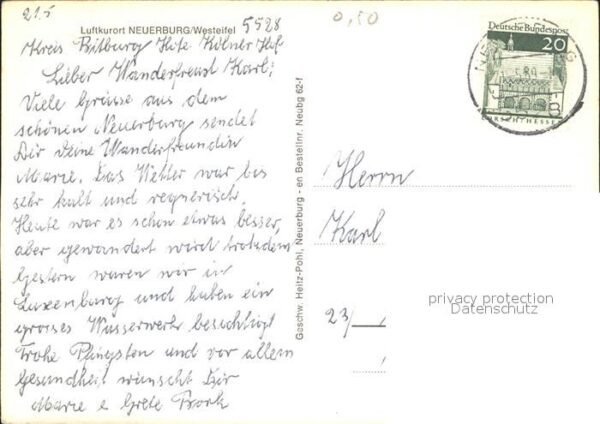 21.5
Luftkurort NEUERBURG/Westeifel 5528
Kreis Bitburg
Lieber Wanderfreund Karl;
Viele Grüsse aus dem
schönen Neuerburg sendet
Dir Deine Wanderfreundin
Marie. Das Wetter war bis
sehr kalt und regnerisch.
Heute war es schon etwas besser,
aber gewandert wird trotzdem
Gestern waren wir in
Luxenburg und haben ein
grosses Wasserwerk besichtigt
Frohe Pfingsten und vor allem
Gesundheit wünscht Dir
Marie u Grete
Geschw. Heitz-Pohl, Neuerburg - en Bestellnr. Neubg 62-f
0,50
Deutsche Bundespost
20
LORSCH HESSEN
Herrn
Karl
23/
privacy protection
Datenschutz